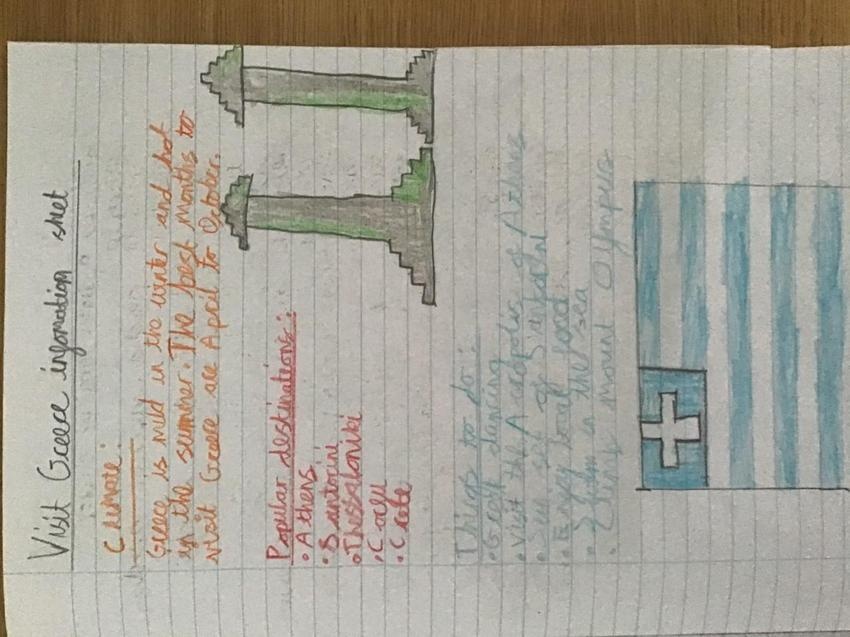 Visit Greece infomation sheet
Climate:
Greece is mild in the winter and hot
in the summer. The best months to
visit Greece are April to October.
Popular destinations:
• Athens
• Santorini
• Thessaloniki
• Corfu
• Crete
Things to do:
• Greek dancing
• Visit the Acropolis of Athens
• Sun set of Santorini
• Enjoy local food
• Swim in the sea
• Climb mount Olympus